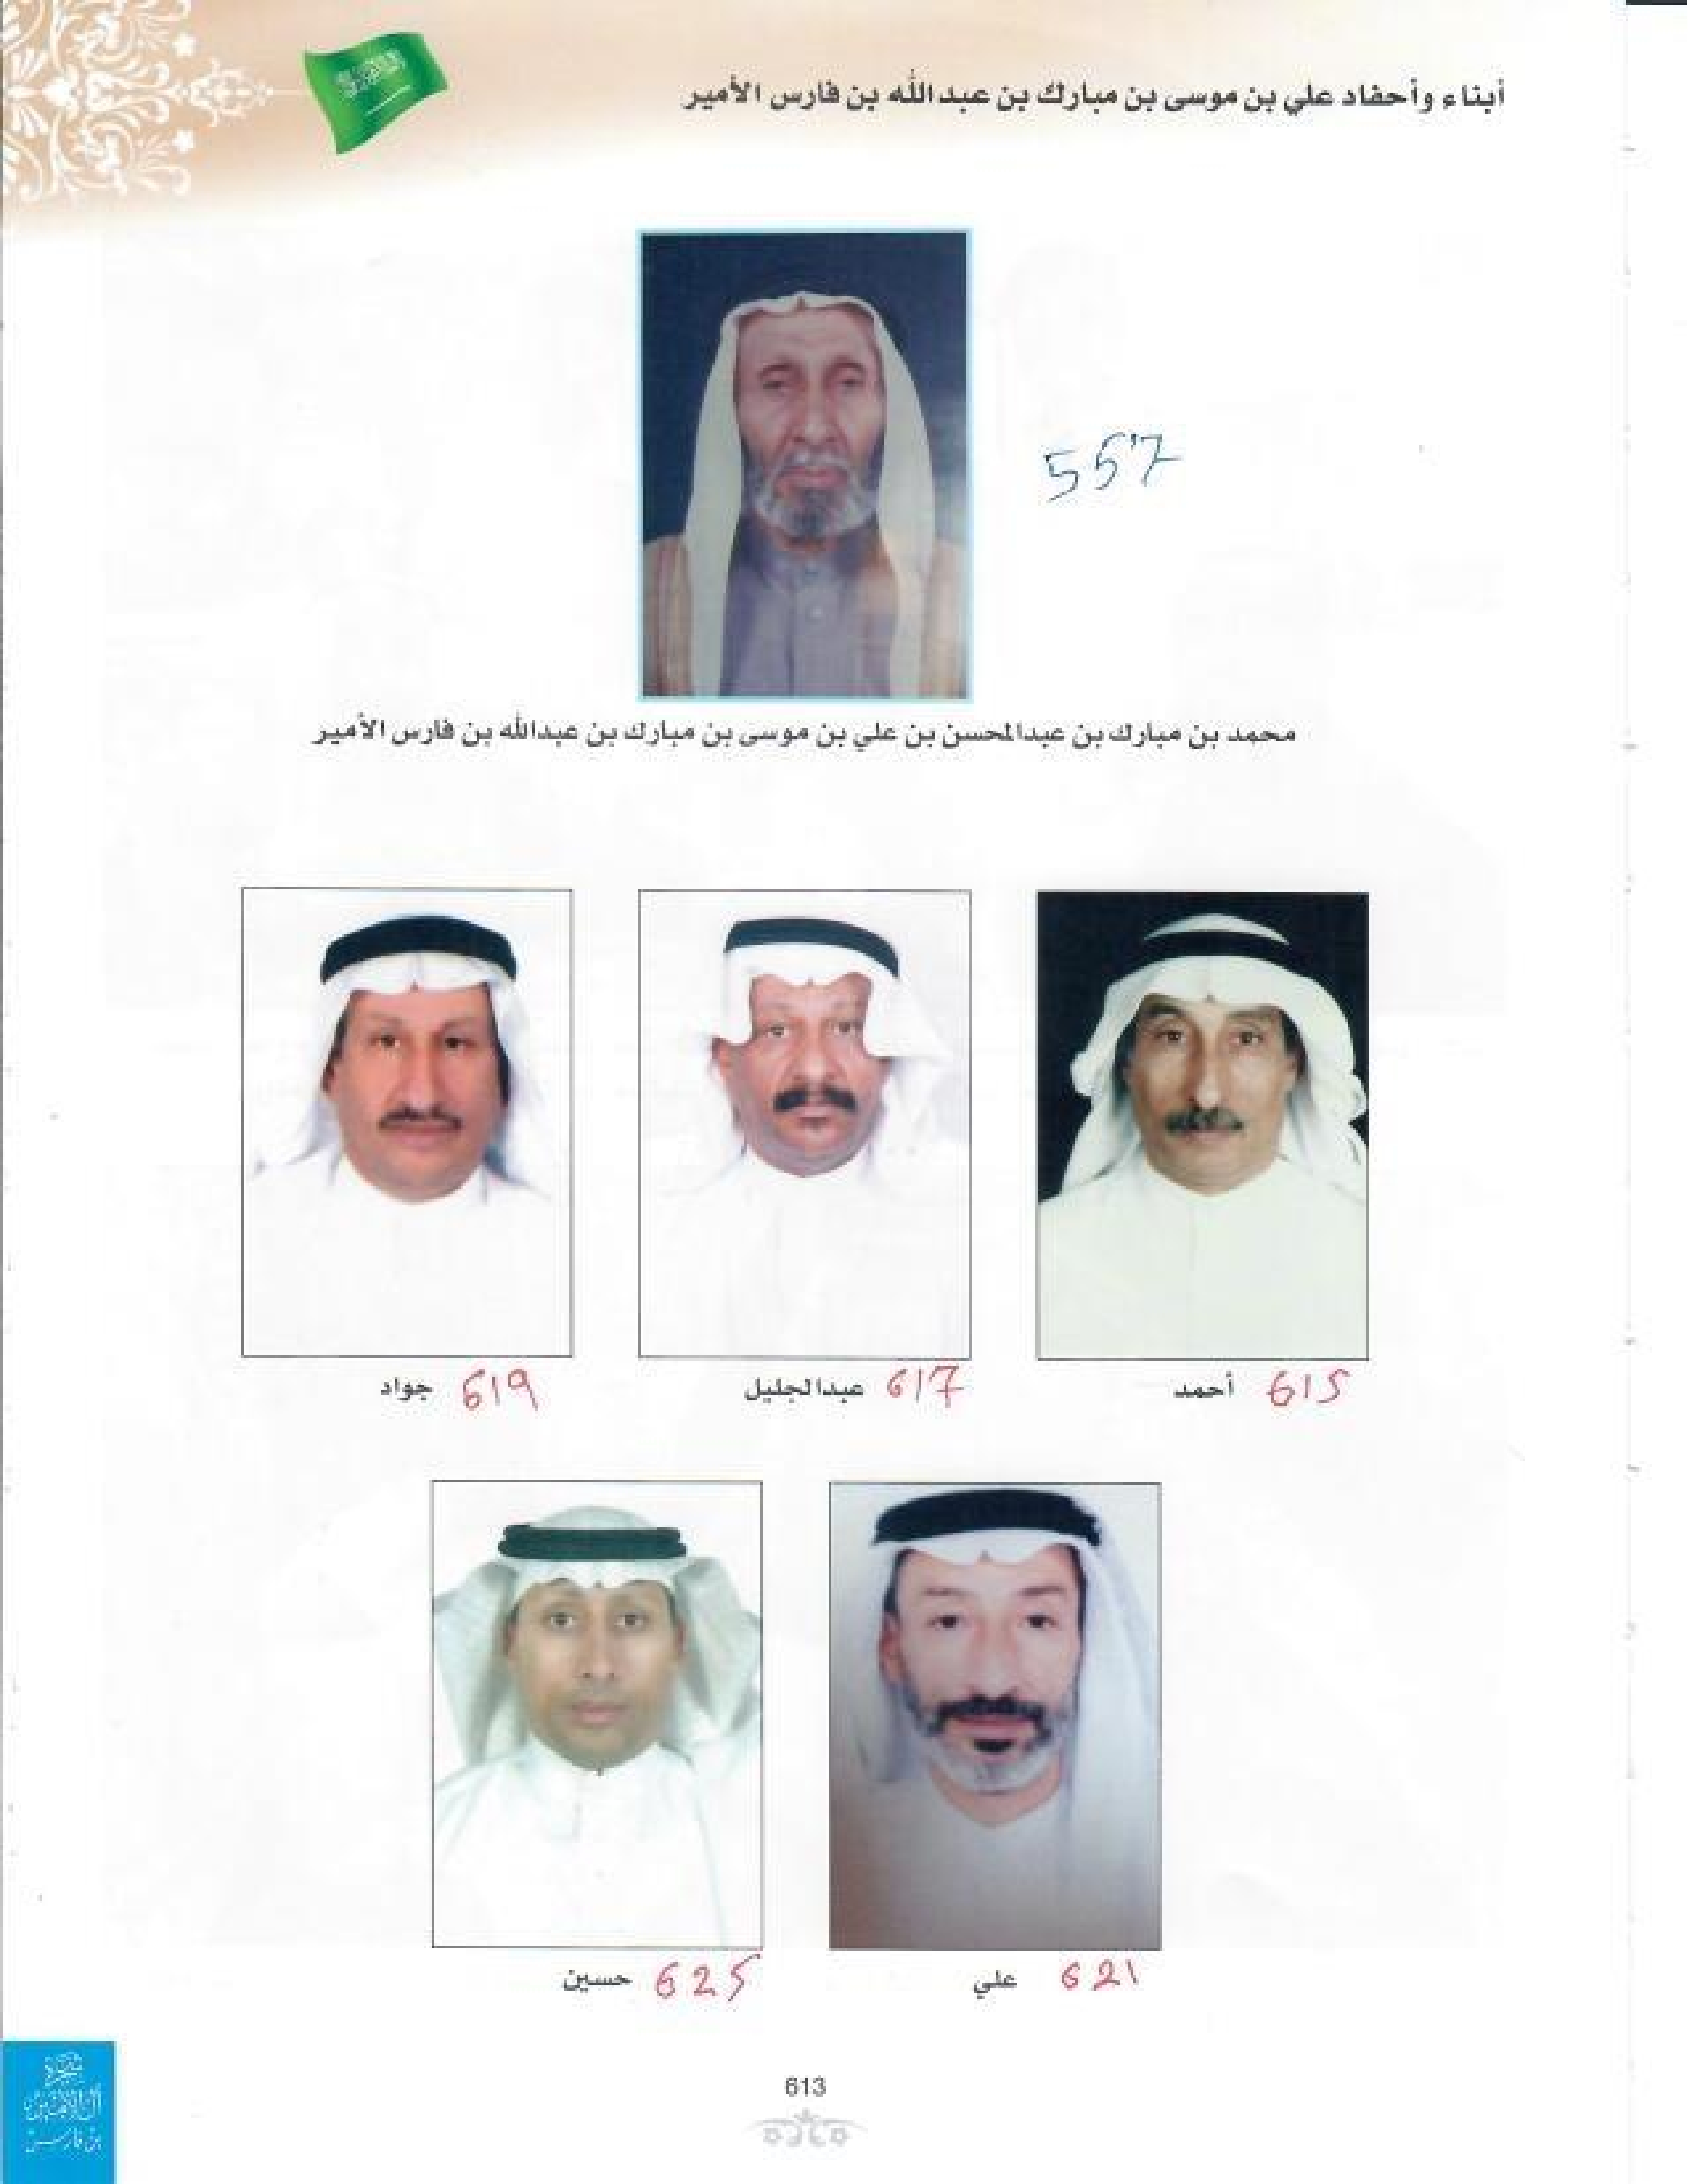 أبناء وأحفاد علي بن موسى بن مبارك بن عبد الله بن فارس الأمير
557
محمد بن مبارك بن عبدالمحسن بن علي بن موسى بن مبارك بن عبدالله بن فارس الأمير
615 أحمد
617 عبدالجليل
619 جواد
621 علي
625 حسين
شجرة
آل الأمير
بن فارس
613